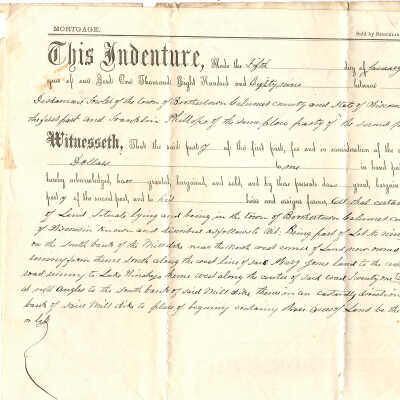 MORTGAGE.
Sold by
This Indenture, Made the Fifth day of January
year of our Lord One Thousand Eight Hundred and Eighty nine between
Fowler of the town of Brothertown Calumet county and State of
the first part and Franklin Phillips of the same place party of the second
Witnesseth, That the said part y of the first part, for and in consideration of the
Dollars to me in hand
hereby acknowledged, have granted, bargained, and sold, and by these presents do grant, bargain
part y of the second part, and to his heirs and assigns forever, all that certain
of Land Situate lying and being in the town of Brothertown Calumet
of Wisconsin Known and described as follows to Wit: Being part of Lot No
on the South bank of the Mill dike near the North west corner of Land now owned
thence South along the west line of said Mary Jones land to the
road running to Lake Winnebago thence west along the center of said road Twenty one
at right Angles to the South bank of said Mill dike thence in an easterly direction
bank of said Mill dike to place of beginning containing three acres of Land be the
or less